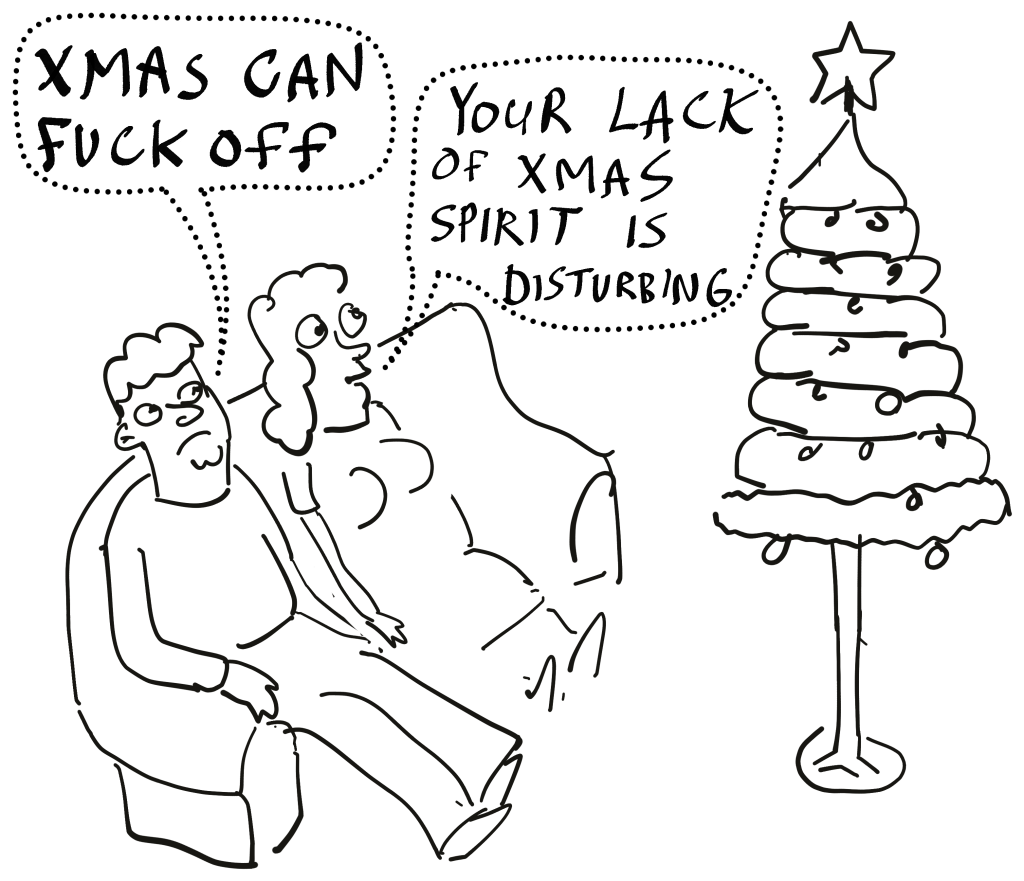 XMAS CAN
FUCK OFF
YOUR LACK
OF XMAS
SPIRIT IS
DISTURBING